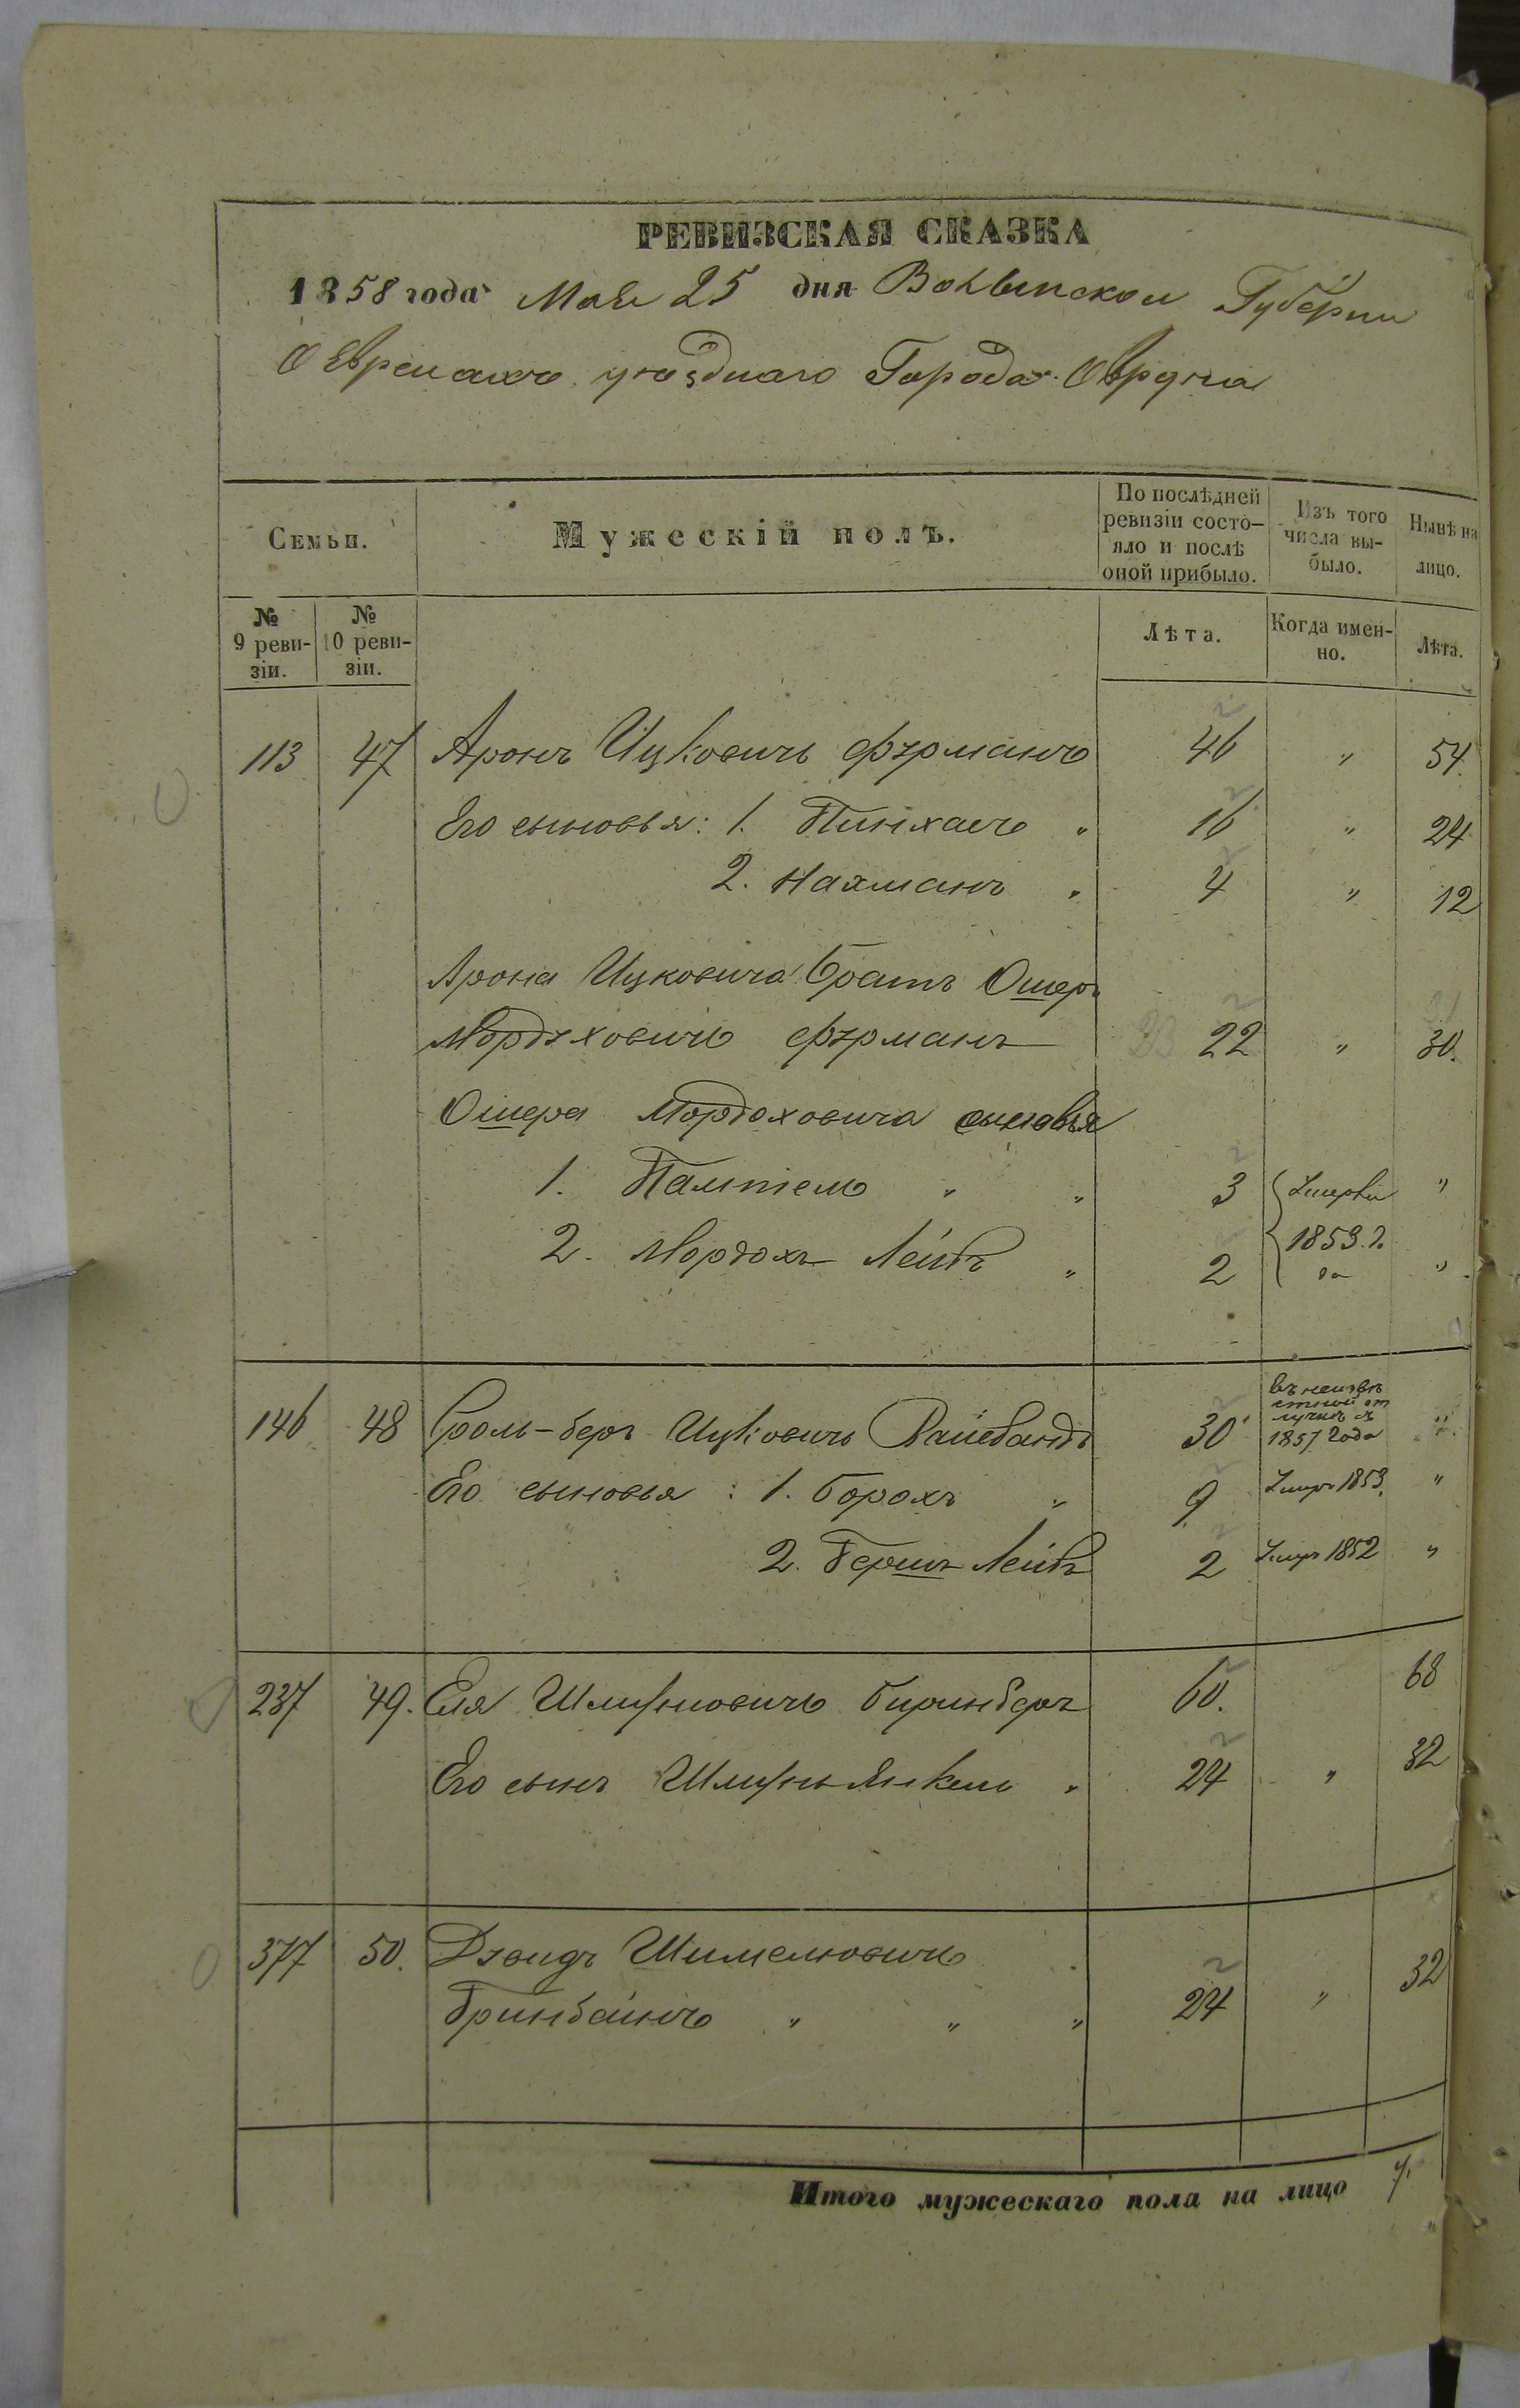 РЕВИЗСКАЯ СКАЗКА
1858 года Мая 25 дня Волынской Губернии
О Евреяхъ уѣзднаго Города Овруча
Семьи.
Мужескій полъ.
По послѣдней ревизіи состо-яло и послѣ оной прибыло.
Изъ того числа вы-было.
Нынѣ на лицо.
№ 9 реви-зіи.
№ 10 реви-зіи.
Лѣта.
Когда имен-но.
Лѣта.
113 47 Аронъ Ицковичъ Фурманъ 46 " 54.
Его сыновья: 1. Пинхасъ " 16 " 24
2. Нахманъ " 4 " 12
Арона Ицковича братъ Ошеръ
Мордуховичъ Фурманъ 22 " 30.
Ошера Мордоховича сыновья
1. " " 3 Умерли "
2. Мордохъ Лейбъ " 2 1853 г. "
146 48 Сроль-Беръ Ицковичъ 30 въ неизвѣ
стной от
лучкѣ съ
1857 года "
Его сыновья: 1. Борохъ " 9 Умеръ 1853. "
2. Гершъ Лейбъ 2 Умеръ 1852 "
237 49. Еля Шмуйловичъ 60. 68
Его сынъ Янкель " 24 " 32
377 50. Дувидъ Шимелиовичъ
Гринбаймъ " " " 24 " 32
Итого мужескаго пола на лицо 7.